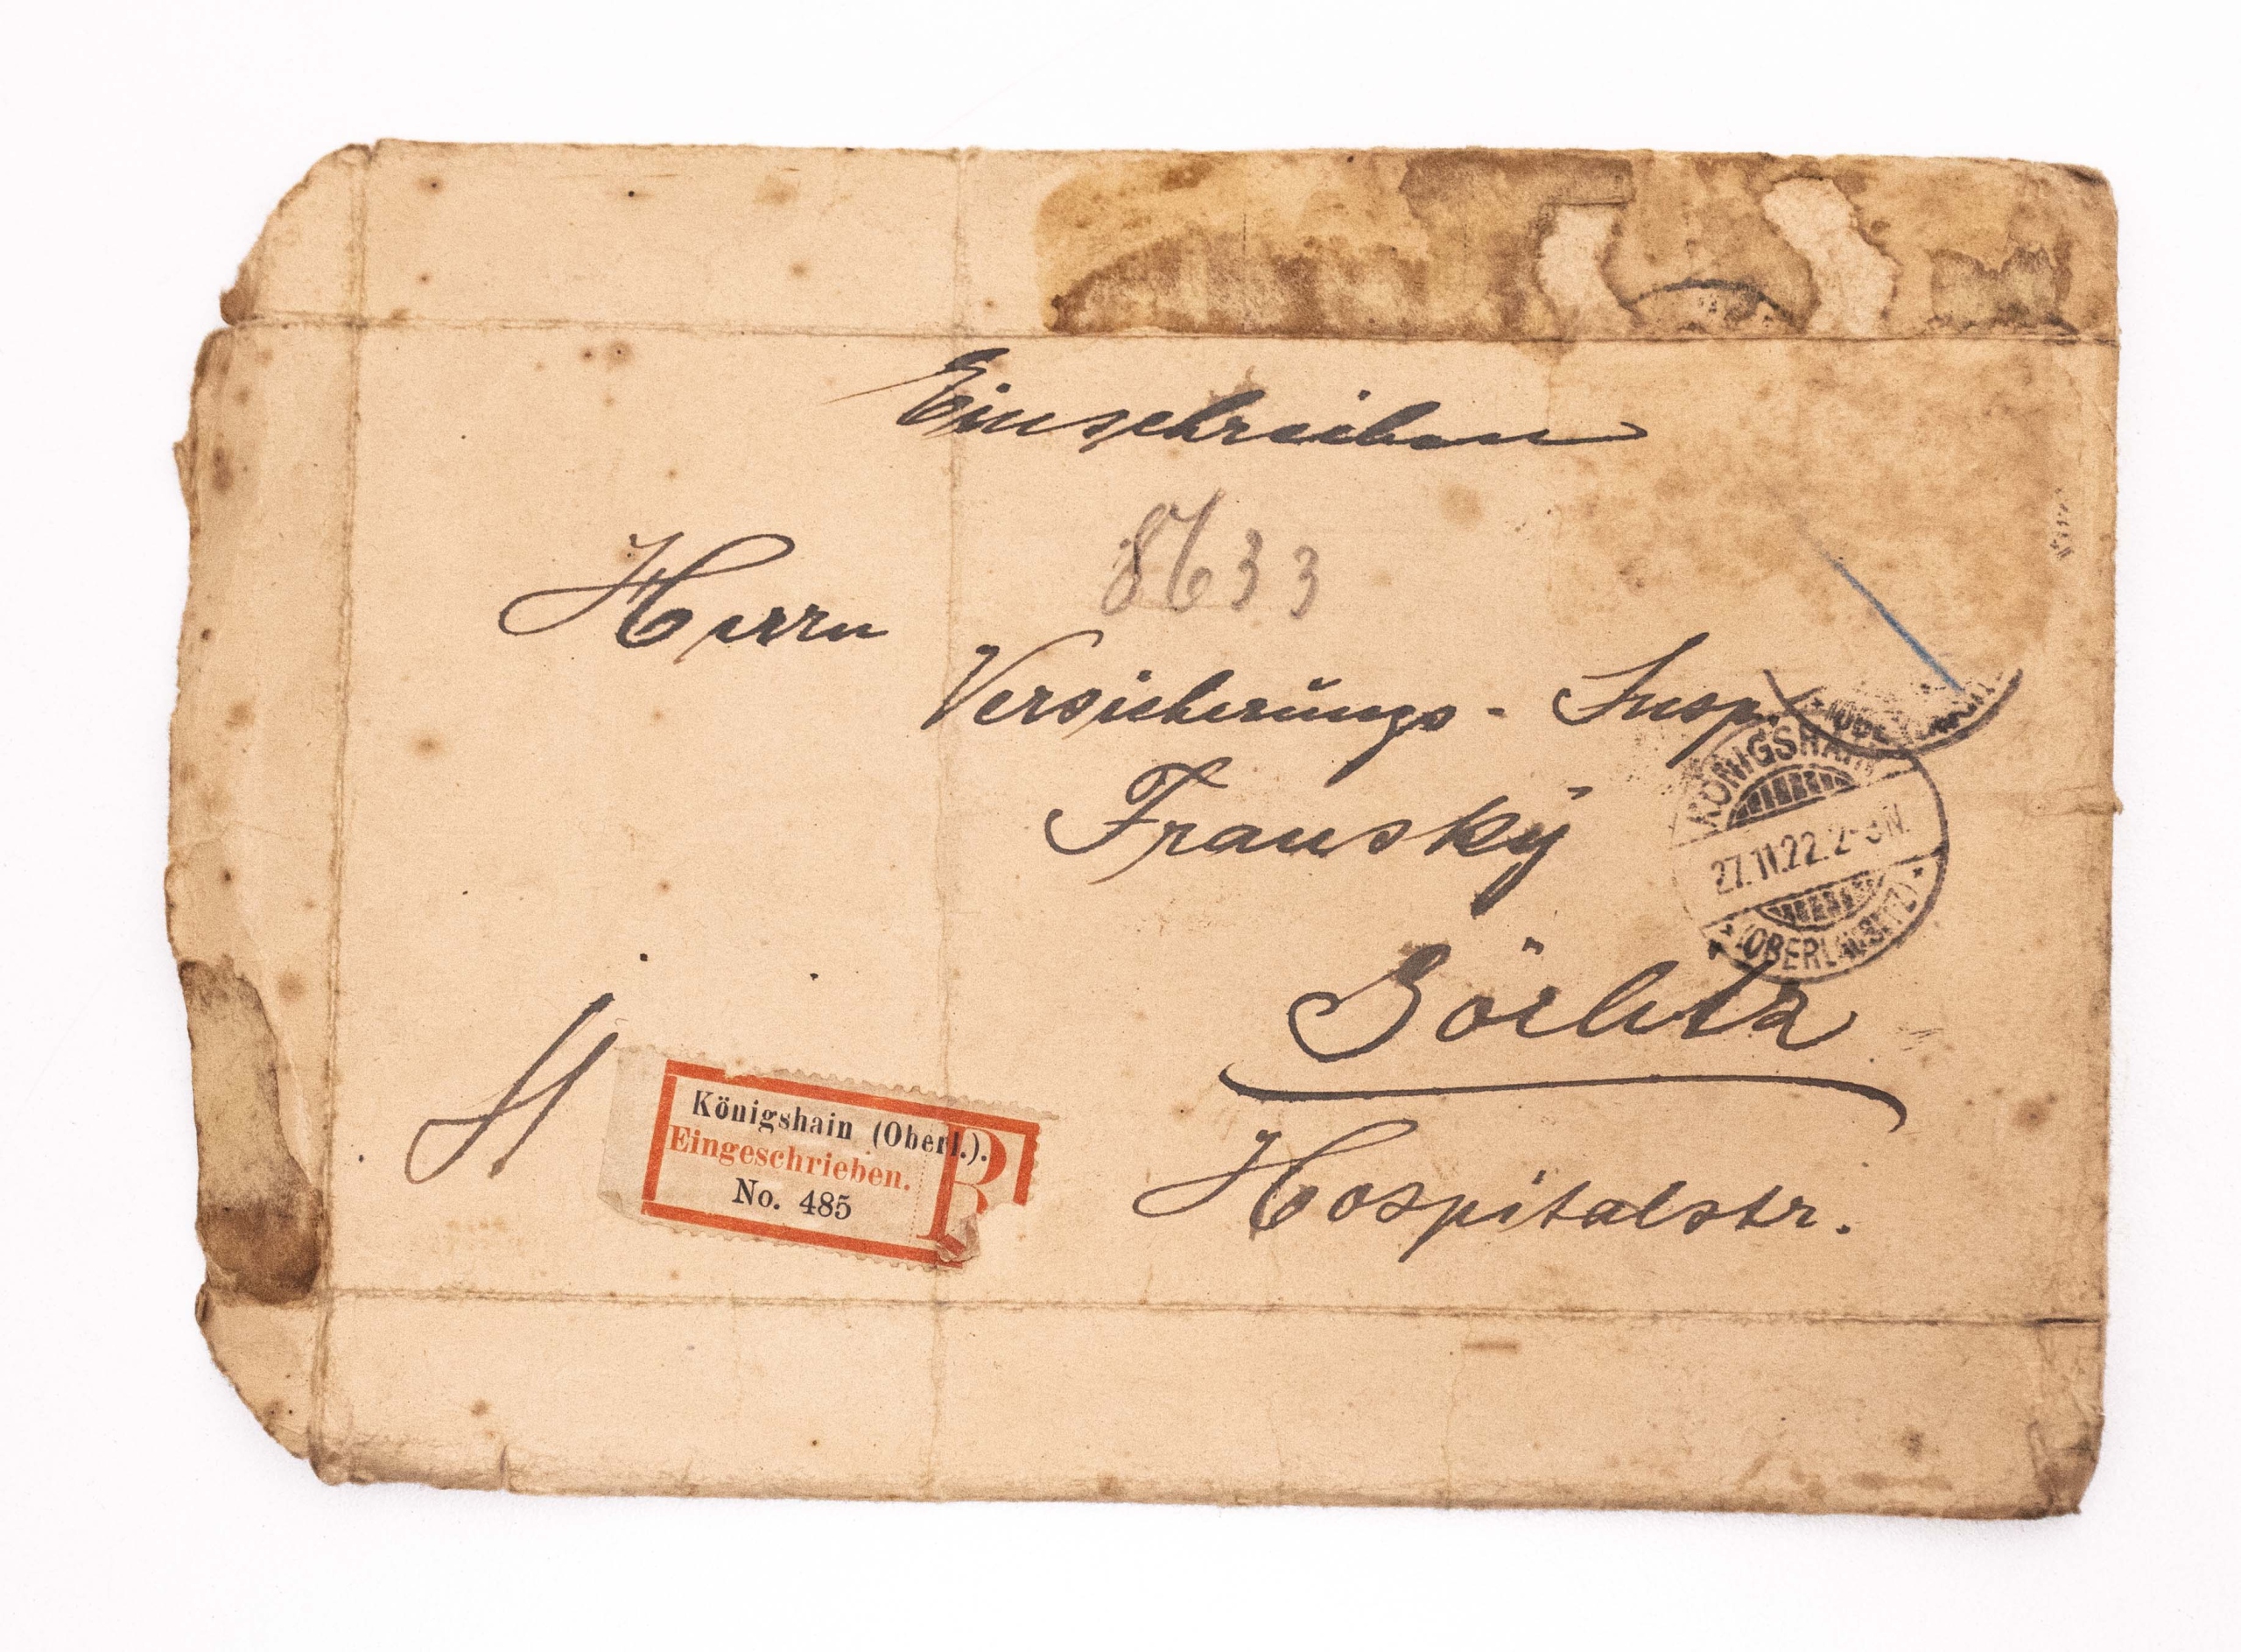 Einschreiben
8633
Herrn
Versicherungs-Insp.
Fransky
Görlitz
Hospitalstr.
KÖNIGSHAIN
27.11.22.2-3N.
(OBERLAUSITZ)
Königshain (Oberl.).
Eingeschrieben.
No. 485
R